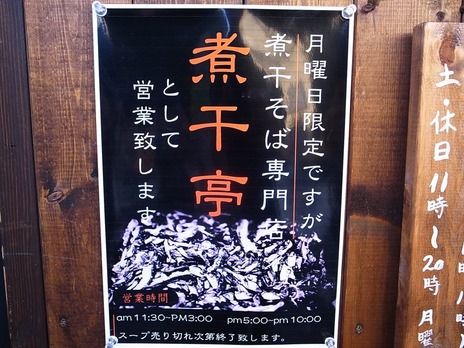 月曜日限定ですが、
煮干そば専門店
煮干亭
として
営業致します
営業時間
am11:30~PM3:00 pm5:00~pm10:00
スープ売り切れ次第終了致します。
土・休日11時~20時
月曜